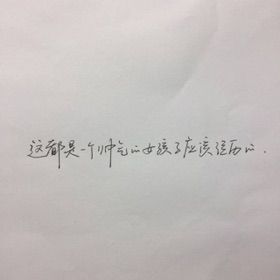 这都是一个帅气的女孩子应该经历的.